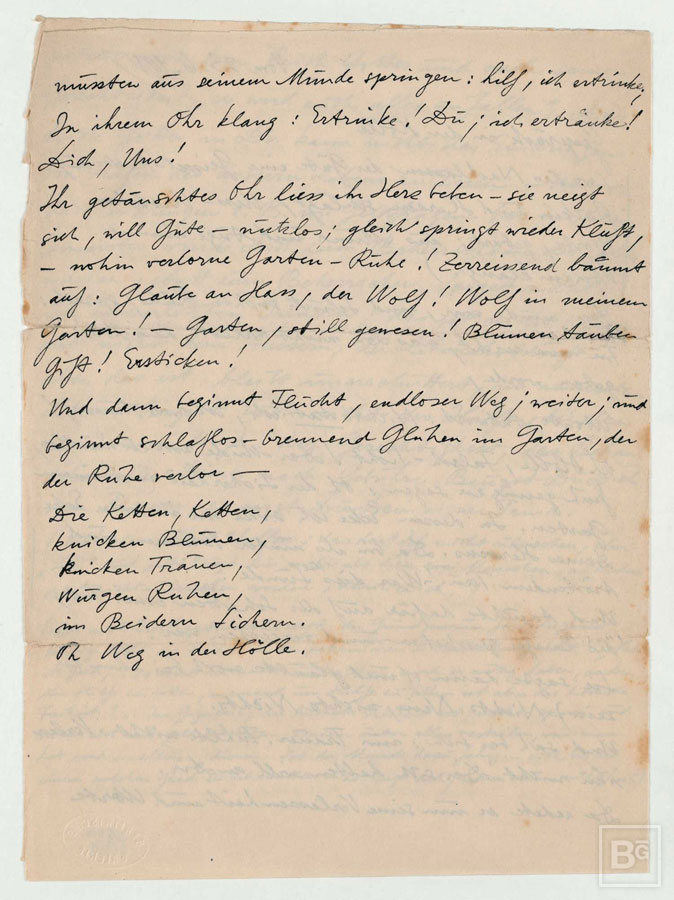 müssten aus seinem Munde springen: hilf, ich ertrinke;
In ihrem Ohr klang: Ertrinke! Du; ich ertränke!
Dich, Uns!
Ihr getäuschtes Ohr liess ihr Herz beben – sie neigt
sich, will Güte – nutzlos; gleich springt wieder Kluft,
– wohin verlorne Garten-Ruhe! Zerreissend bäumt
auf: Glaube an Hass, der Wolf! Wolf in meinem
Garten! – Garten, still gewesen! Blumen täuben
Gift! Ersticken!
Und dann beginnt Flucht, endloser Weg; weiter; und
beginnt schlaflos-brennend Glühen im Garten, der
der Ruhe verlor —
Die Ketten, Ketten,
knicken Blumen,
knicken Tränen,
Würgen Ruhen,
im Beidern
Oh Weg in der Hölle.
BG